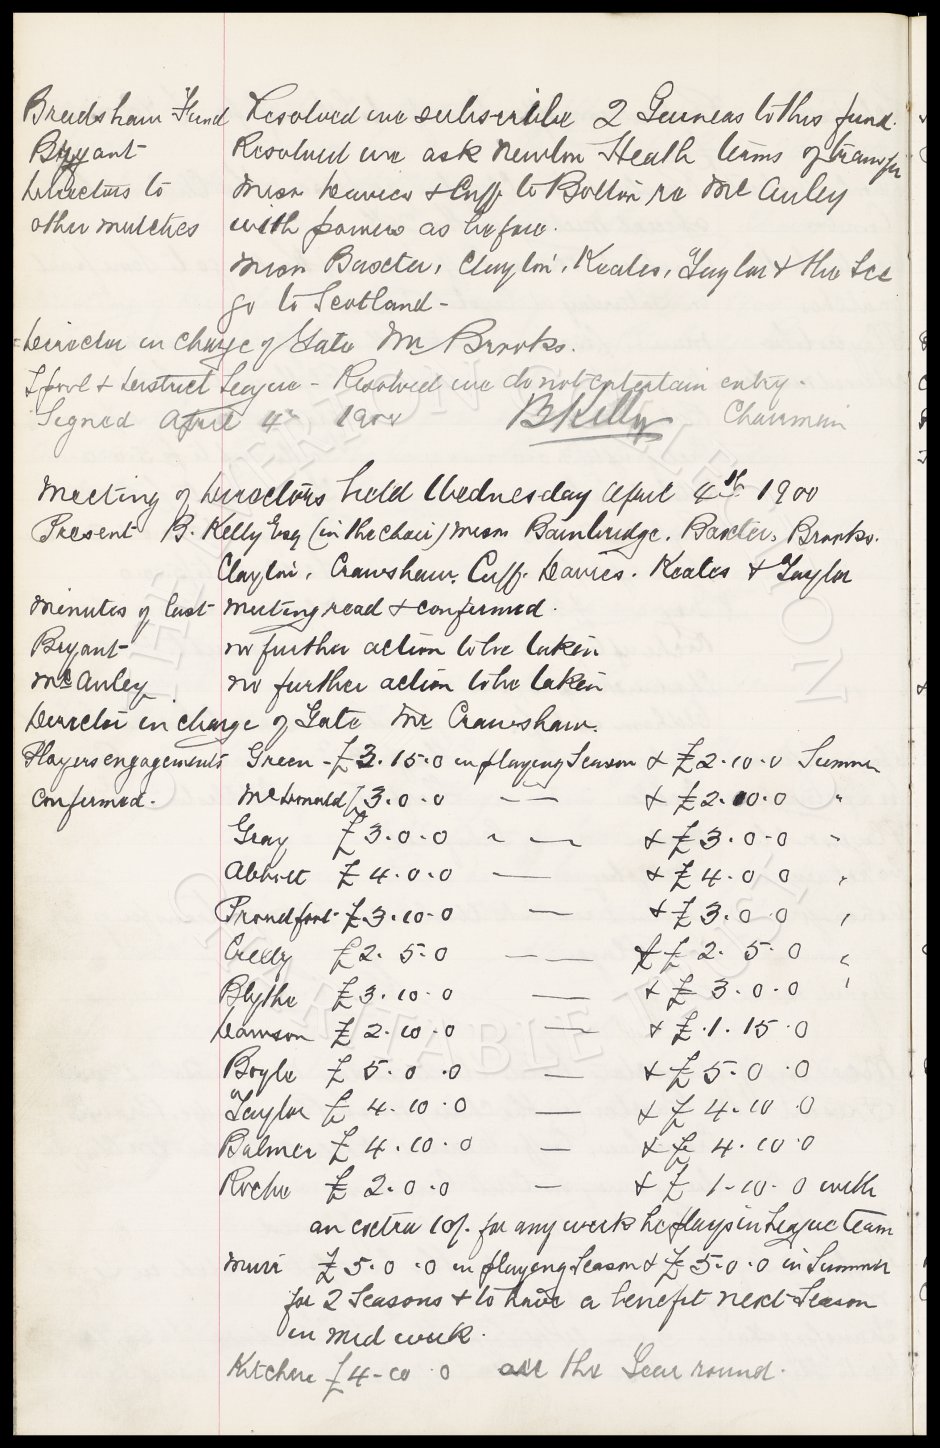 Bradshaw Fund Resolved we subscribe 2 Guineas to this fund.
Bryant Resolved we ask Newton Heath terms of transfer
Directors to Messrs Davies & Cuff to Bolton re McAuley
other matches with powers as before.
Messrs Baxter, Clayton, Keates, Taylor & the Sec
go to Scotland -
Director in charge of Gate Mr Brooks.
L'pool & District League - Resolved we do not entertain entry.
Signed April 4th 1900 B Kelly Chairman
Meeting of Directors held Wednesday April 4th 1900
Present B. Kelly Esq (in the chair) Messrs Bainbridge, Baxter, Brooks.
Clayton, Crawshaw, Cuff, Davies, Keates & Taylor
Minutes of last meeting read & confirmed.
Bryant no further action to be taken
McAuley no further action to be taken
Director in charge of Gate Mr Crawshaw.
Players engagements Green - £3.15.0 in playing Season & £2.10.0 Summer
confirmed. McDonald £3.0.0 — — & £2.10.0 "
Gray £3.0.0 " — & £3.0.0 "
Abbott £4.0.0 — & £4.0.0 "
Proudfoot £3.10.0 — & £3.0.0 "
Creely £2.5.0 — — & £2.5.0 "
Blythe £3.10.0 — & £3.0.0 "
Dawson £2.10.0 — & £1.15.0
Boyle £5.0.0 — & £5.0.0
Taylor £4.10.0 — & £4.10.0
Balmer £4.10.0 — & £4.10.0
Roche £2.0.0 — & £1-10-0 with
an extra 10/- for any week he plays in League team
Muir £5.0.0 in playing Season & £5.0.0 in Summer
for 2 Seasons & to have a benefit next Season
in mid week.
Kitchen £4-10.0 all the Year round.
OLLECTION
CHARITABLE TRUST